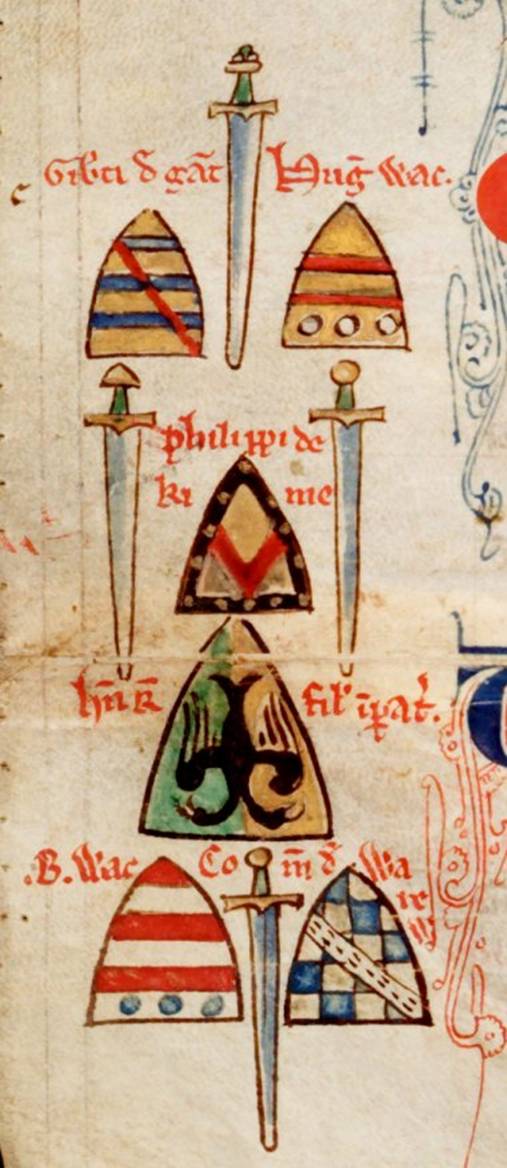 Gilb'ti d' gāt Hug̃ Wac.
philippi de
ki me
hn̄ R̄ fil' īpat'.
.B. Wac Co m̄ d' Wa
re
W